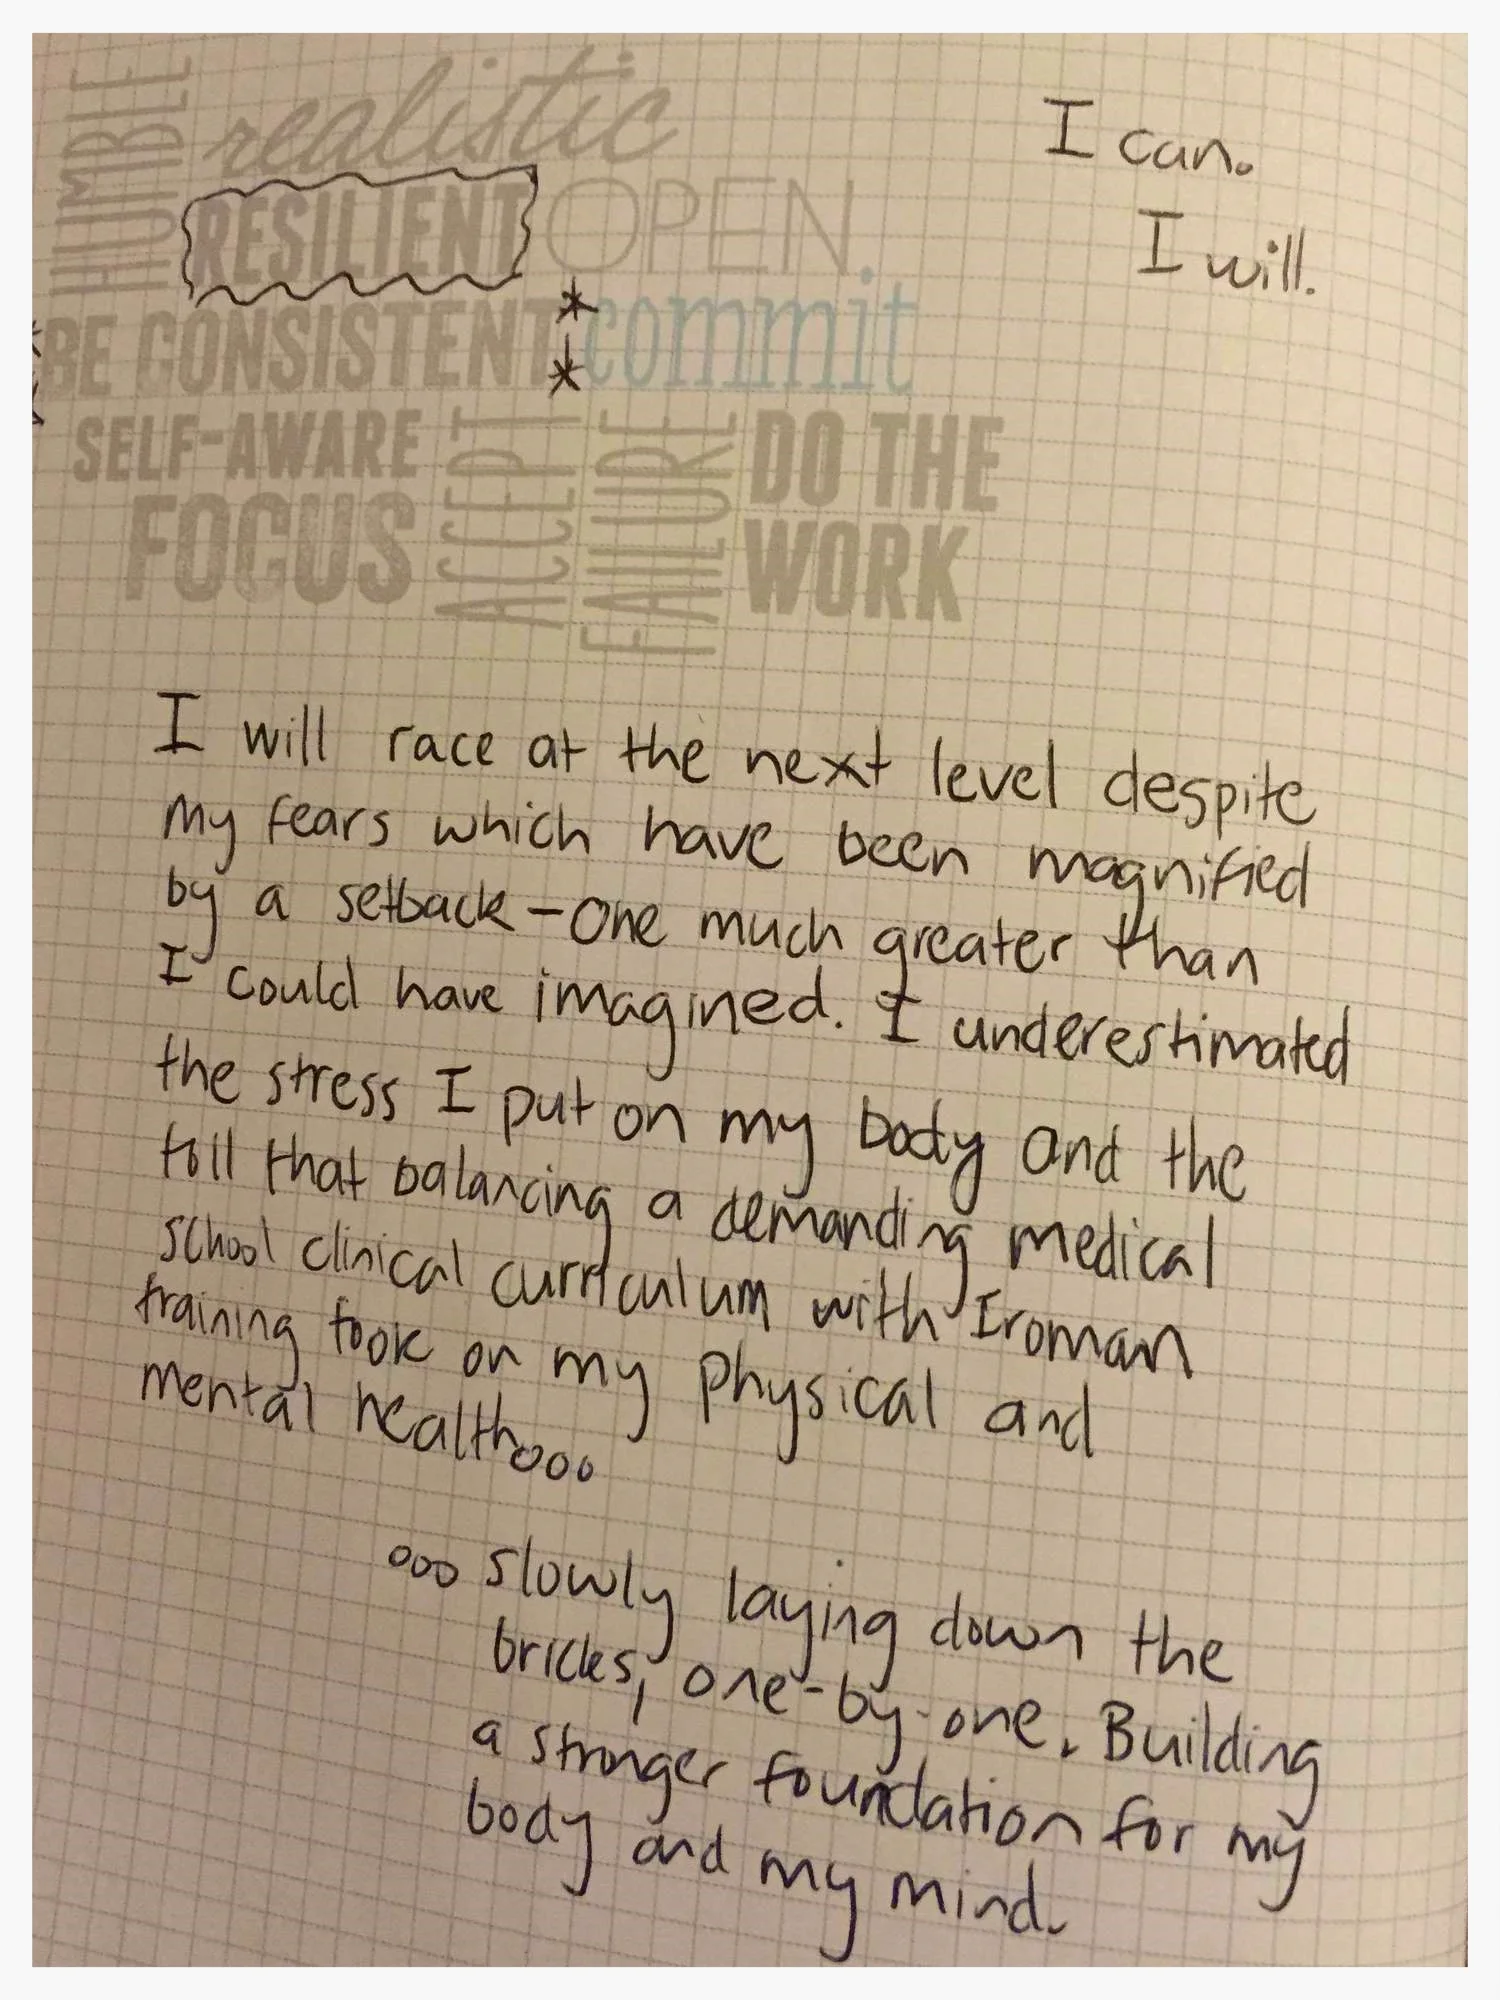 HUMBLE
realistic
I can.
RESILIENT OPEN.
I will.
BE CONSISTENT commit
SELF-AWARE
FOCUS
ACCEPT
FAILURE
DO THE
WORK
I will race at the next level despite
my fears which have been magnified
by a setback - one much greater than
I could have imagined. I underestimated
the stress I put on my body and the
toll that balancing a demanding medical
school clinical curriculum with Ironman
training took on my physical and
mental health...
... slowly laying down the
bricks, one-by-one. Building
a stronger foundation for my
body and my mind.